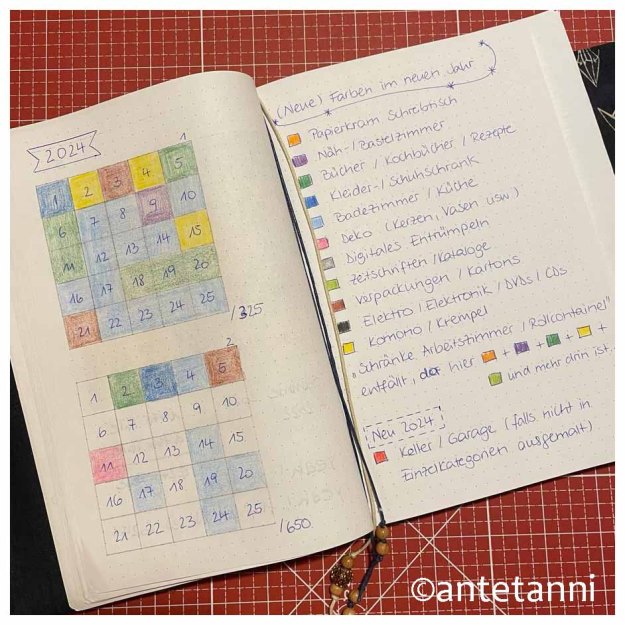 2024
1
1 2 3 4 5
6 7 8 9 10
11 12 13 14 15
16 17 18 19 20
21 22 23 24 25
/325
2
1 2 3 4 5
6 7 8 9 10
11 12 13 14 15
16 17 18 19 20
21 22 23 24 25
/650
(Neue) Farben im neuen Jahr
Papierkram, Schreibtisch
Näh-/Bastelzimmer
Bücher / Kochbücher / Rezepte
Kleider-/Schuhschrank
Badezimmer / Küche
Deko (Kerzen, Vasen usw.)
Digitales Entrümpeln
Zeitschriften / Kataloge
Verpackungen / Kartons
Elektro / Elektronik / DVDs / CDs
Komono / Krempel
"Schränke Arbeitszimmer / Rollcontainer"
entfällt, da hier + + + +
und mehr drin ist...
Neu 2024
Keller / Garage (falls nicht in
Einzelkategorien ausgemalt)
©antetanni